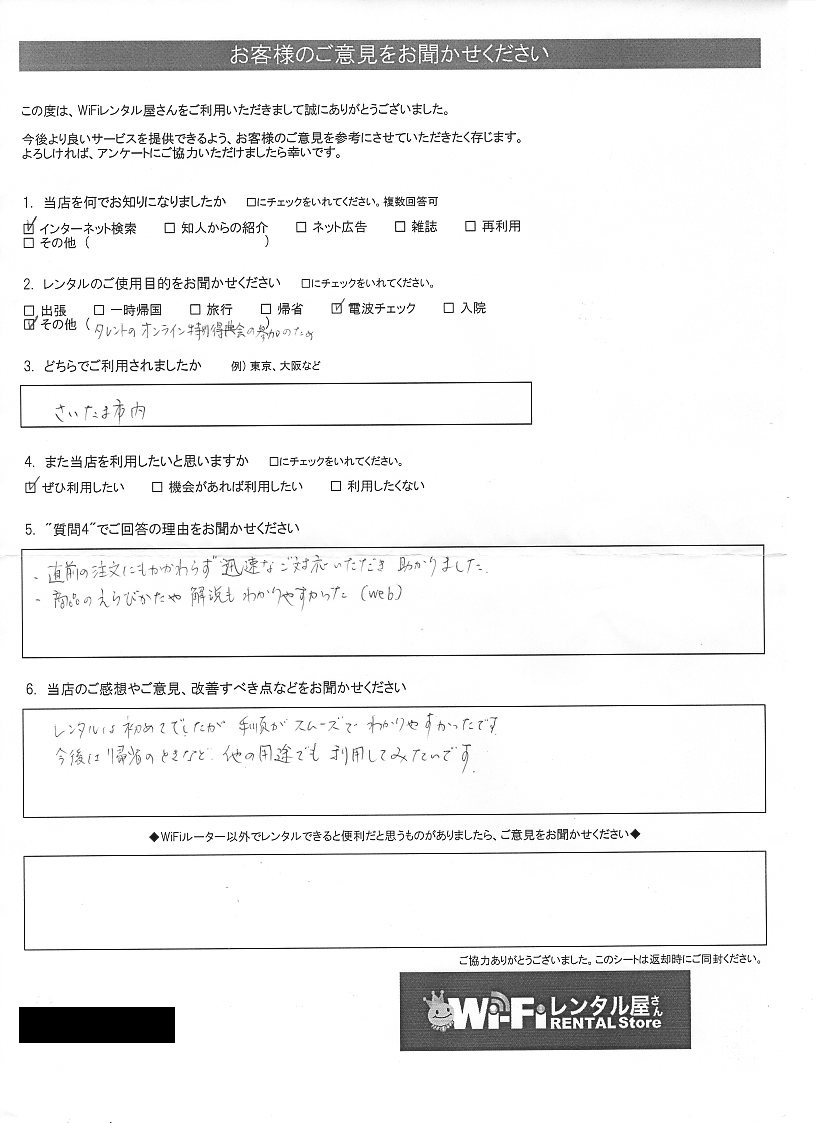 お客様のご意見をお聞かせください
この度は、WiFiレンタル屋さんをご利用いただきまして誠にありがとうございました。
今後より良いサービスを提供できるよう、お客様のご意見を参考にさせていただきたく存じます。
よろしければ、アンケートにご協力いただけましたら幸いです。
1. 当店を何でお知りになりましたか □にチェックをいれてください。複数回答可
☑ インターネット検索 □ 知人からの紹介 □ ネット広告 □ 雑誌 □ 再利用
□ その他 ( )
2. レンタルのご使用目的をお聞かせください □にチェックをいれてください。
□ 出張 □ 一時帰国 □ 旅行 □ 帰省 ☑ 電波チェック □ 入院
☑ その他 ( タレントの オンライン特別得典会の参加のため )
3. どちらでご利用されましたか 例) 東京、大阪など
さいたま市内
4. また当店を利用したいと思いますか □にチェックをいれてください。
☑ ぜひ利用したい □ 機会があれば利用したい □ 利用したくない
5. "質問4"でご回答の理由をお聞かせください
・直前の注文にもかかわらず 迅速なご対応いただき 助かりました。
・商品のえらびかたや 解説も わかりやすかった (web)
6. 当店のご感想やご意見、改善すべき点などをお聞かせください
レンタルは初めてでしたが 手順が スムーズで わかりやすかったです
今後は帰省のときなど、他の用途でも 利用してみたいです。
◆WiFiルーター以外でレンタルできると便利だと思うものがありましたら、ご意見をお聞かせください◆
ご協力ありがとうございました。このシートは返却時にご同封ください。
Wi-Fiレンタル屋さん
RENTAL Store